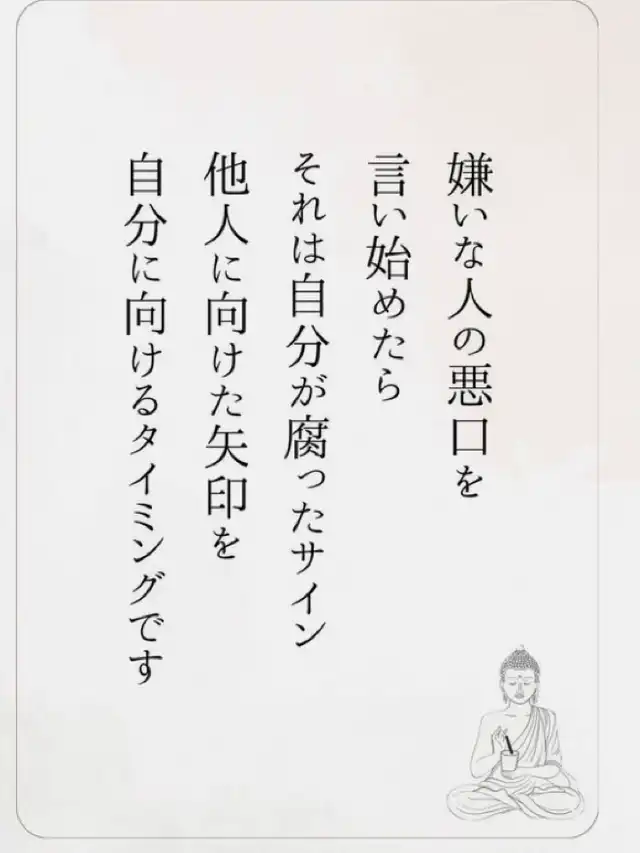 嫌いな人の悪口を
言い始めたら
それは自分が腐ったサイン
他人に向けた矢印を
自分に向けるタイミングです